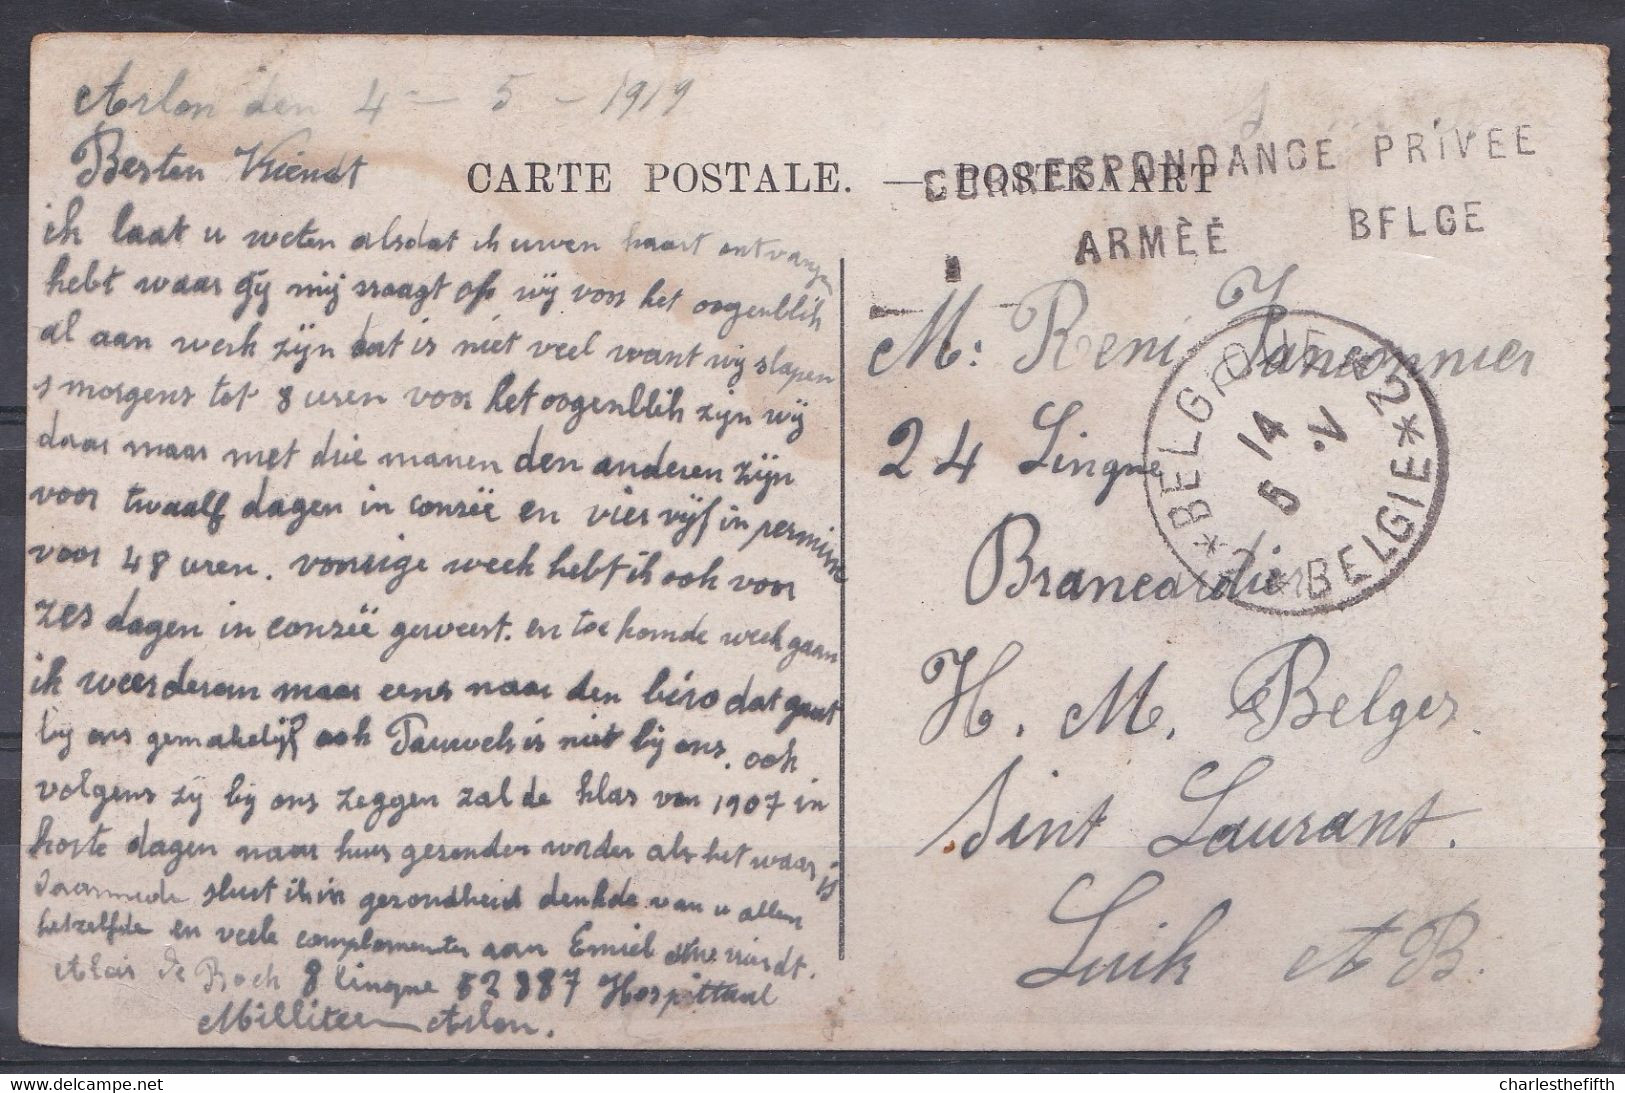 Arlon den 4 – 5 – 1919
Besten Vriendt
CARTE POSTALE. — POSTKAART
CORRESPONDANCE PRIVEE
ARMÈÉ BFLGE
ik laat u weten alsdat ik uwen kaart ontvangen
hebt waar gy mij vraagt of wy voor het oogenblik
al aan werk zijn dat is niet veel want wy slapen
s morgens tot 8 uren voor het oogenblik zijn wij
daar maar met drie manen den anderen zijn
voor twaalf dagen in conzië en vier vijf in permisie
voor 48 uren. vorrige week hebt ik ook voor
zes dagen in conzië geweest. en toekomde week gaan
ik weer deran maar eens naar den biro dat gaat
by ons gemakelijk ook Pauwels is niet by ons. ook
volgens zy by ons zeggen zal de klas van 1907 in
korte dagen naar huis gezonden worden als het waar is
Daarmede sluit ik in gezondheid denkde van u allen
hetzelfde en veele complomenten aan Emiel uwe vriendt.
Alois De Rock 8 lingne 52887 Hospittaal
Milliteer Arlon.
M: Reni Janconnier
24 Lingne
Brancardier
H. M. Belges.
Sint Laurant.
Luik A B.
*BELGIQUE 2*BELGIE
14
5 .V
charlesthefifth